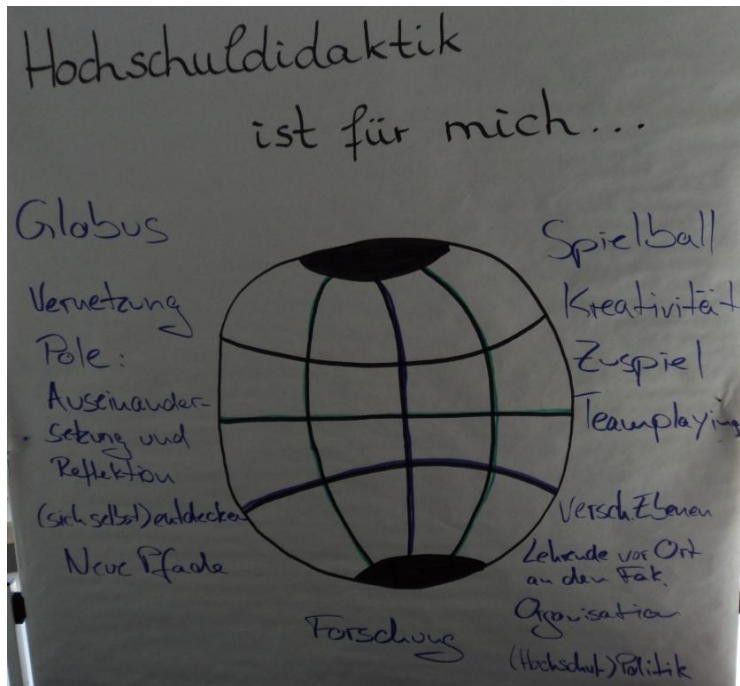 Hochschuldidaktik
ist für mich...
Globus
Vernetzung
Pole:
Auseinander-
setzung und
Reflektion
(sich selbst) entdecken
Neue Pfade
Forschung
Spielball
Kreativität
Zuspiel
Teamplaying
Versch. Ebenen
Lehrende vor Ort
an den Fak.
Oganisation
(Hochschul) Politik